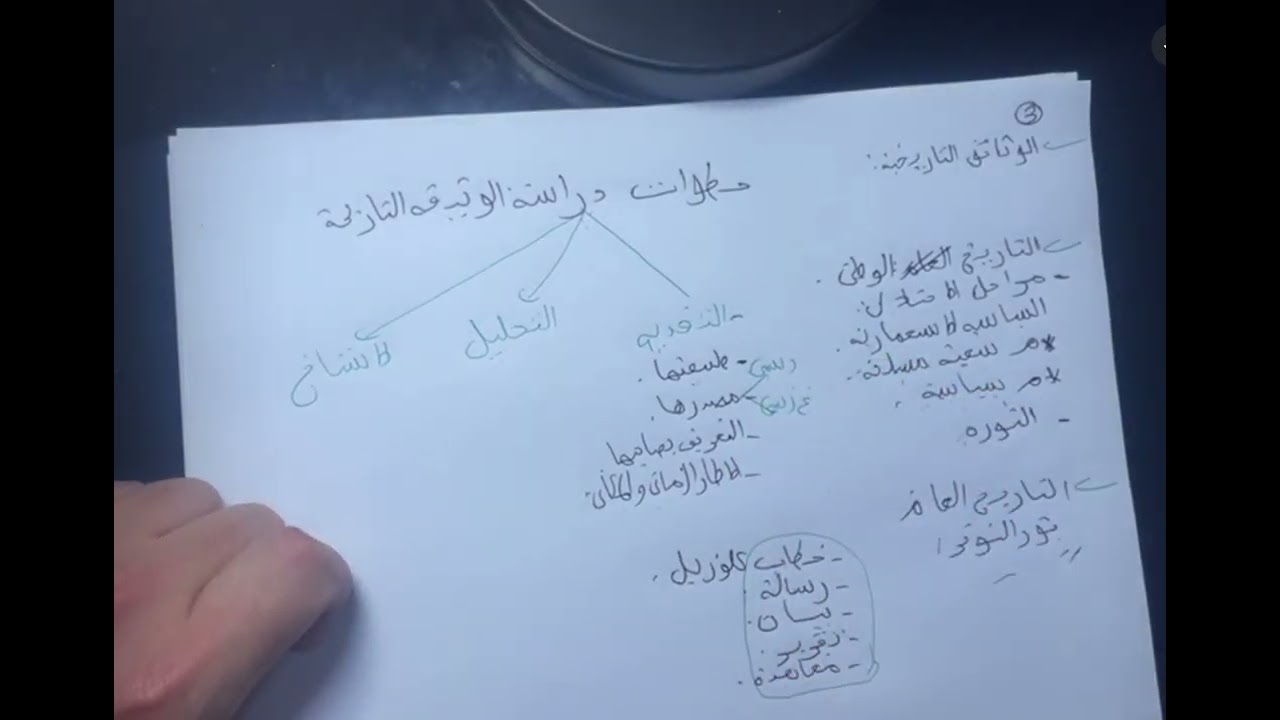 ③
الوثائق التاريخية:
التاريخ الوطني.
- مراحل الاحتلال:
السياسة الاستعمارية.
*م شعبية مسلحة.
*م سياسية.
- الثورة
التاريخ العام
بؤر التوتر
خطوات دراسة الوثيقة التاريخية
- التقديم
التحليل
الاستنتاج
- طبيعتها.
- مصدرها.
رسمي
غ رسمي
- التعريف بصاحبها
- الاطار الزماني والمكاني.
- خطاب
- رسالة
- بيان.
- تقرير.
- معاهدة.